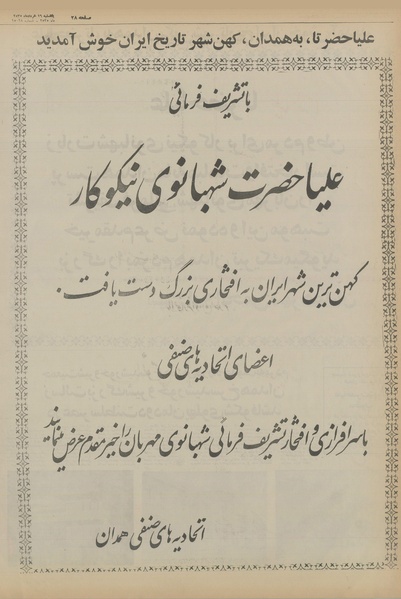 صفحه ۲۸
علیاحضرتا، به همدان، کهن شهر تاریخ ایران خوش آمدید
با تشریف فرمائی
علیاحضرت شهبانوی نیکوکار
کهن ترین شهر ایران به افتخاری بزرگ دست یافت.
اعضای اتحادیه های صنفی
با سرافرازی و افتخار تشریف فرمائی شهبانوی مهربان را خیر مقدم عرض مینمایند
اتحادیه های صنفی همدان